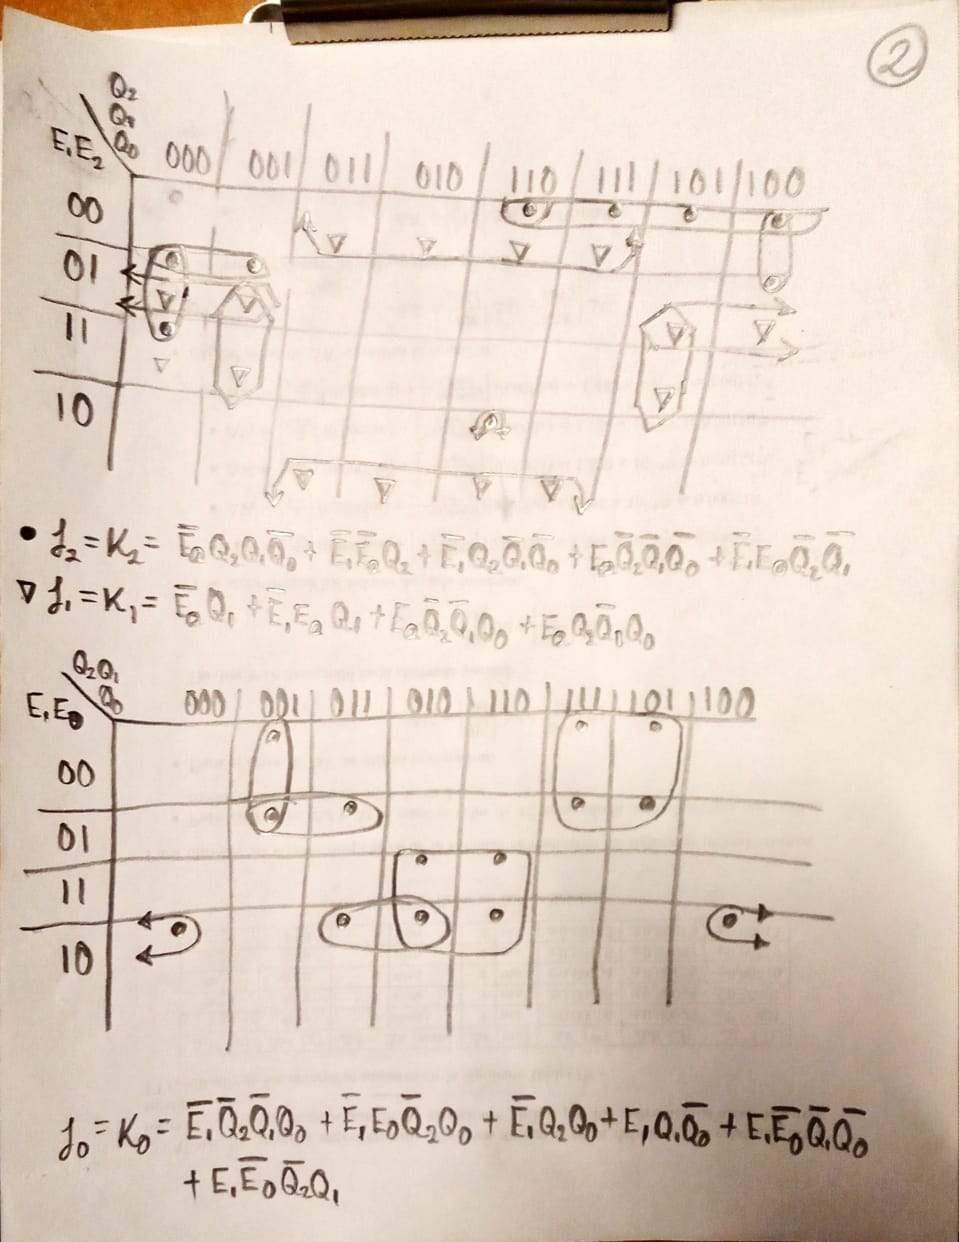 2
Q₂
Q₁
Q₀
E₁E₂
000 001 011 010 110 111 101 100
00
01
11
10
• J₂=K₂= E̅₀Q₂Q₁Q̅₀ + E̅₁E̅₀Q₂ + E̅₁Q₂Q̅₁Q̅₀ + E₀Q̅₂Q̅₁Q̅₀ + E̅₁E₀Q̅₂Q̅₁
▽ J₁=K₁= E̅₀Q₁ + E̅₁E₀Q₁ + E₀Q̅₂Q̅₁Q₀ + E₀Q₂Q̅₁Q₀
Q₂Q₁
Q₀
E₁E₀
000 001 011 010 110 111 101 100
00
01
11
10
J₀=K₀= E̅₁Q̅₂Q̅₁Q₀ + E̅₁E₀Q̅₂Q₀ + E̅₁Q₂Q₀ + E₁Q₁Q̅₀ + E₁E̅₀Q̅₁Q̅₀
+ E₁E̅₀Q̅₂Q₁